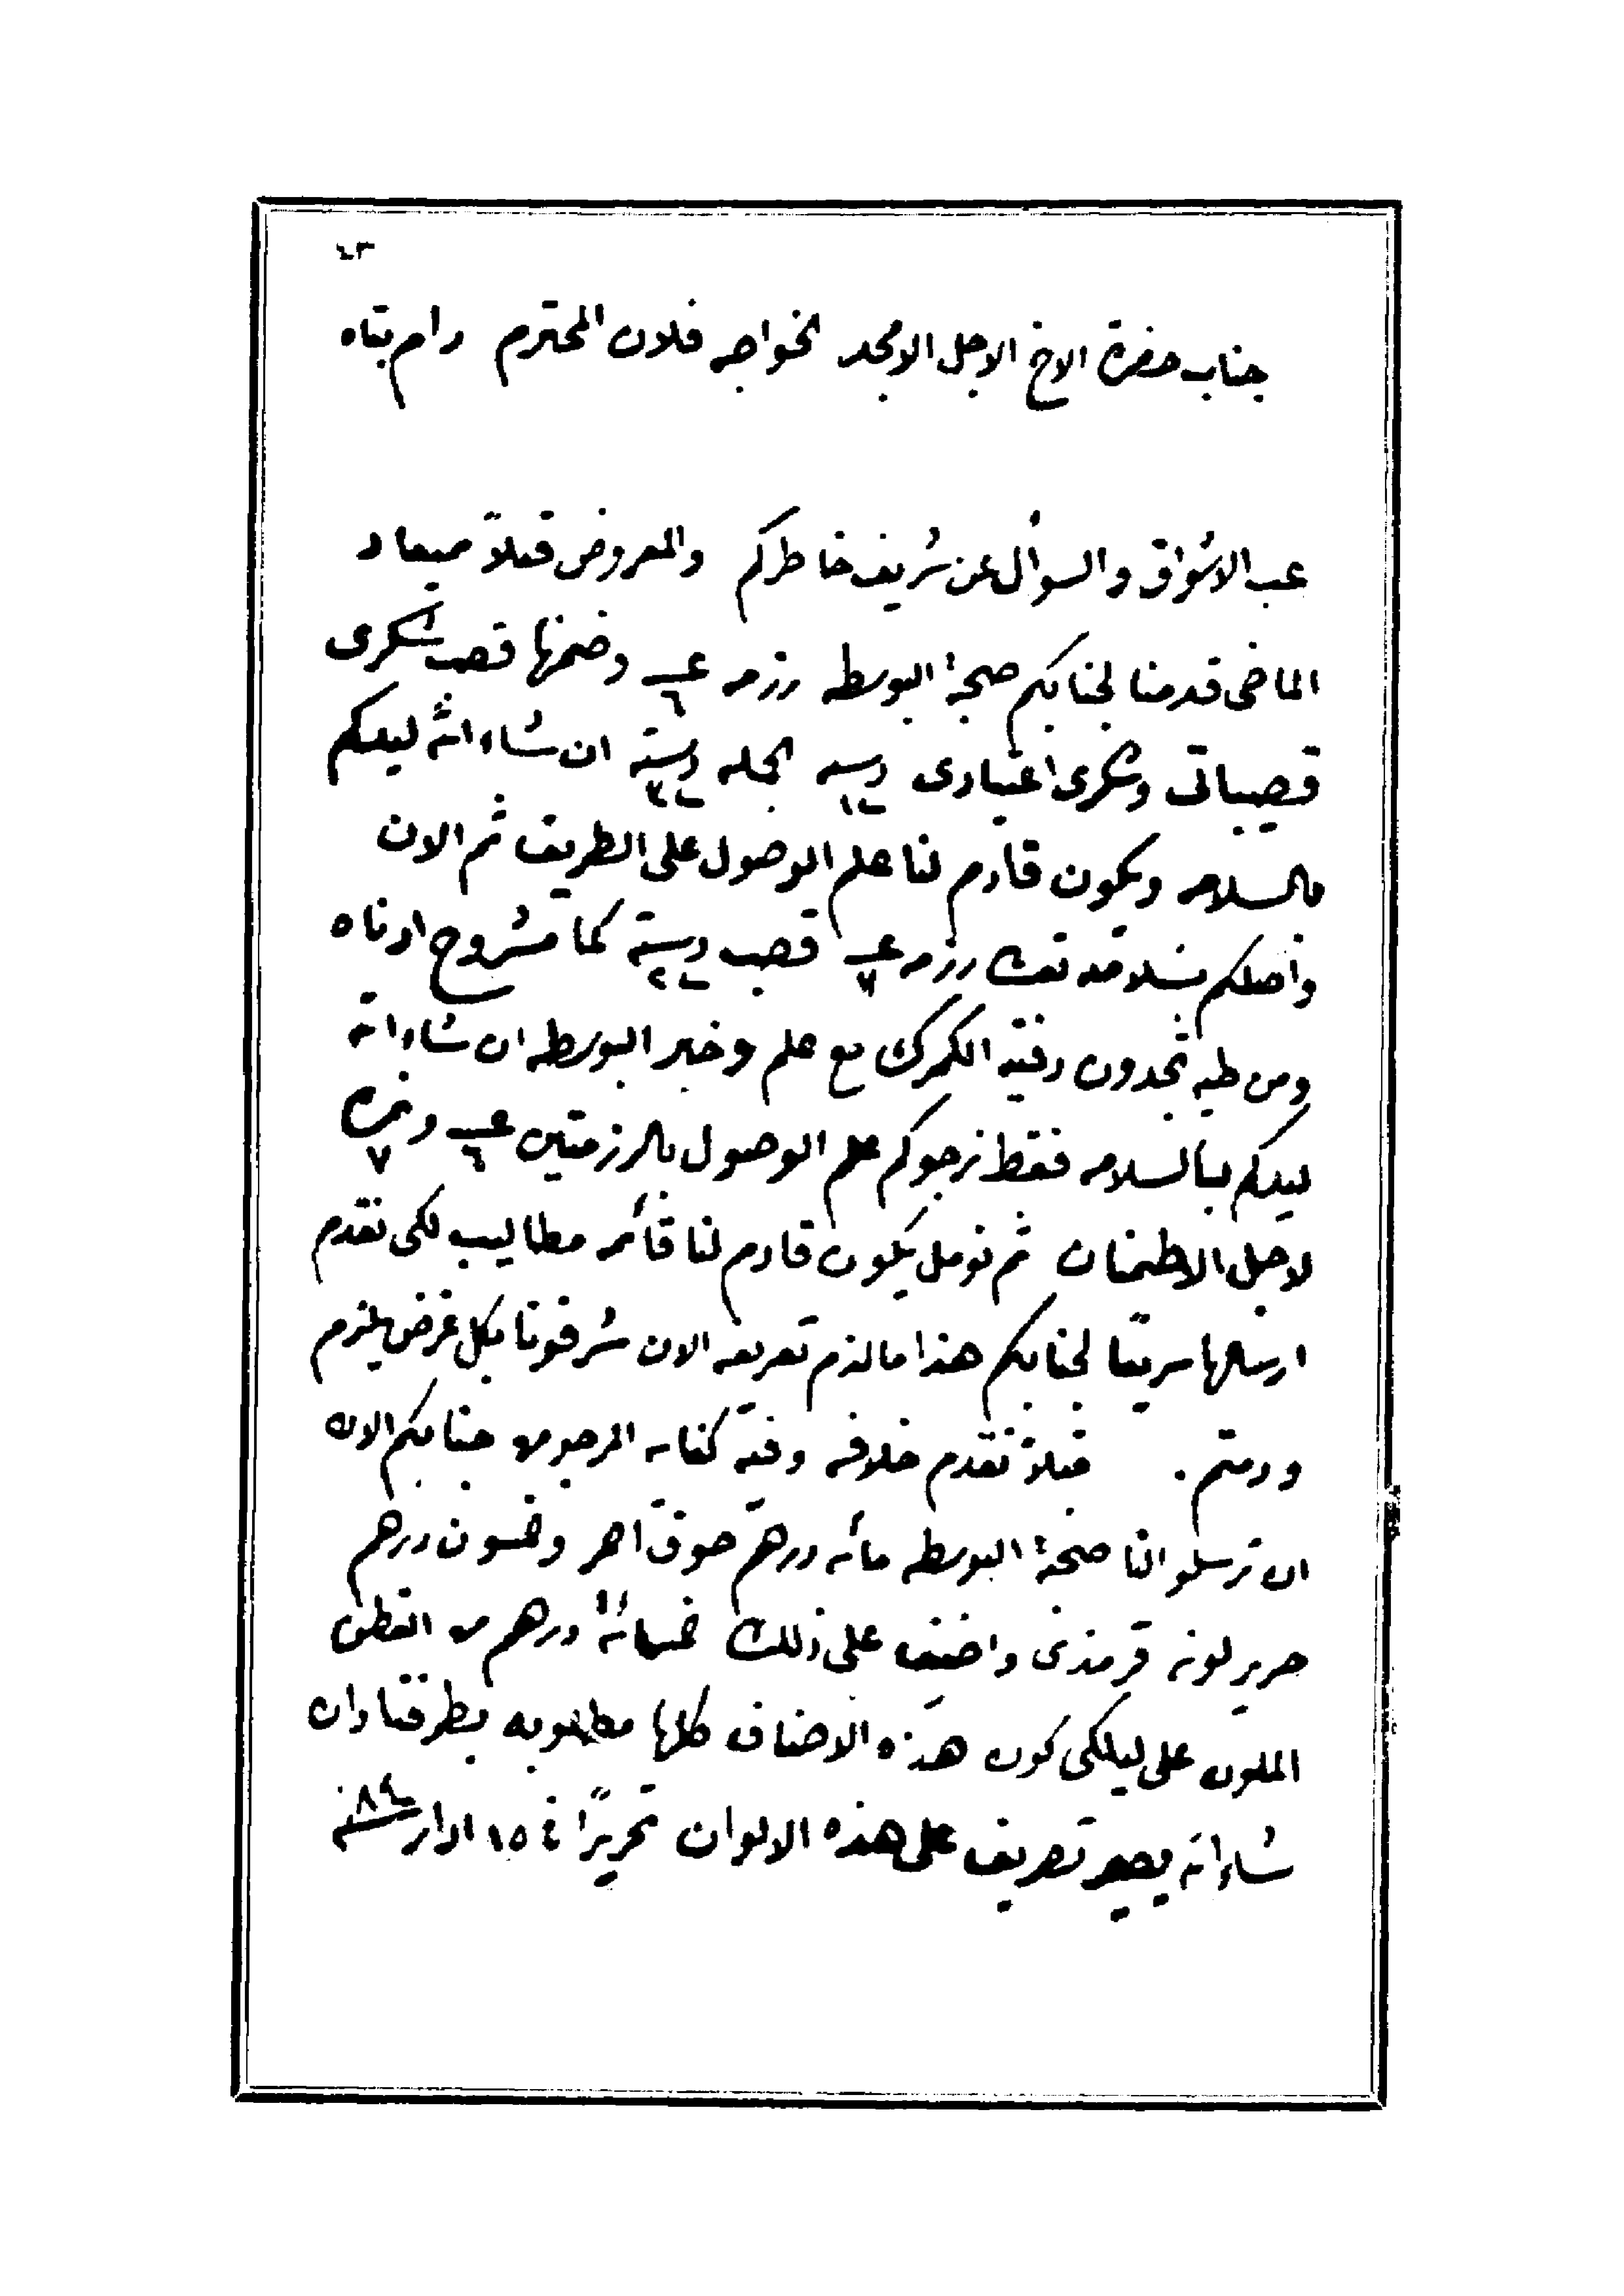 ٤٣
جناب حضرة الاخ الاجل الامجد الخواجه فلان المحترم دام بقاه
غب الاشواق والسؤال عن شريف خاطركم والمعروض قبلاً ميعاد
الماضى قدمنا لجنابكم صحبة البوسطه رزمه عـ ٦ وضمنها قصب شكرى
قصيباتى وشكرى اعتيادى دسته ١٤ الجمله دسته ٣٤ ان شاء الله ليدكم
بالسلامه ويكون قادم لنا علم الوصول على الطريق ثم الان
واصلكم بسلامته تعالى رزمه عـ ٧ قصب دسته ٢٤ كما مشروح ادناه
ومن طيه تجدون دفتيه الكمرك مع علم وخبر البوسطه ان شاء الله
ليدكم بالسلامه فقط نرجوكم علم الوصول بالرزمتين عـ ٦ ونمره ٧
لاجل الاطمنان ثم نومل يكون قادم لنا قائمه مطاليب لكى نقدم
ارسالها سريعًا لجنابكم هذا ما لزم تعريفه الان شرفونا بكل غرض يلزم
ودمتم. قبلاً تقدم خلافه وفيه كفايه المرجو من جنابكم الان
ان ترسلوا لنا صحبة البوسطه مائه درهم صوف احمر وخمسون درهم
حرير لونه قرمذى واضيف على ذلك خمسمائة درهم من القطن
الملون على ليلكى كون هذه الاصناف كلها مطلوبه بطرفنا وان
شاء الله يصير تصريف على هذه الالوان تحريرًا فى ١٥ ادار سنة ٨٤